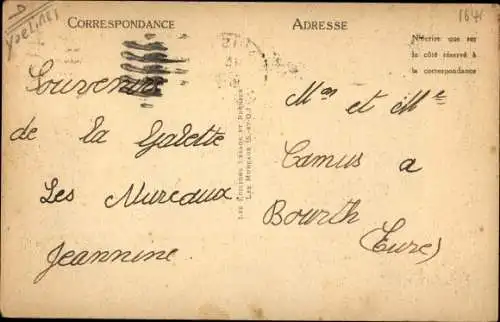 CORRESPONDANCE
ADRESSE
N'écrire que sur
le côté réservé à
la correspondance
Souvenir
de la Galette
Les Mureaux
Jeannine
Mon et Me
Camus a
Bourth
(Eure)
LES MUREAUX (S.-ET-O.)